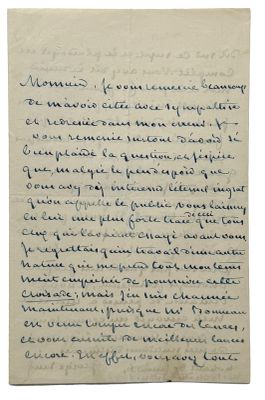 Monsieur. Je vous remercie beaucoup
de m'avoir citée avec sympathie
et dans mon Je
vous remercie surtout d'avoir si
bien plaidé la question, et j'espère
que, malgré le peu d'espoir que
vous avez d'intéresser l'éternel ingrat
qu'on appelle le public, vous laisserez
en lui une plus forte trace que tous
ceux qui avant vous.
Je regrettais qu'un travail d'une autre
nature qui me prend tout mon temps
m'eut empêchée de poursuivre cette
croisade; mais j'en suis charmée
maintenant, puisque Mr
en veut rompre encore des lances,
et vous ensuite de meilleures lances
encore. En effet, vous avez toute